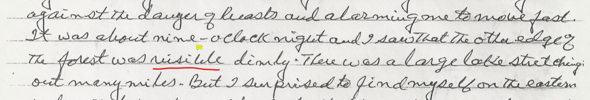 against the danger of beasts and alarming me to move fast.
It was about nine-o'clock night and I saw that the other edge of
the forest was visible dimly. There was a large lake stretching
out many miles. But I surprised to find myself on the eastern